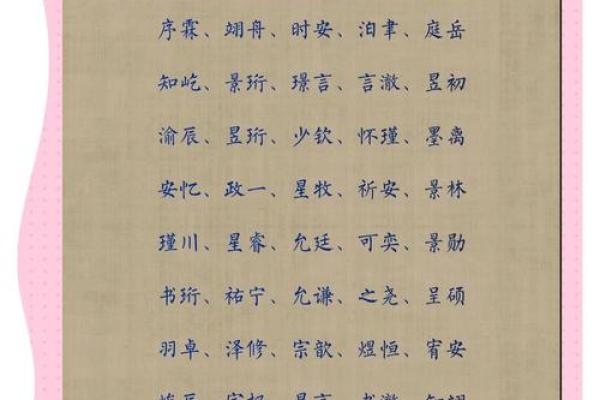 序霖、翊舟、时安、洎聿、庭岳
知屹、景珩、璟言、言澈、昱初
渝辰、昱珩、少钦、怀瑾、墨离
安忆、政一、星牧、祈安、景林
瑾川、星睿、允廷、可奕、景勋
书珩、祐宁、允谦、之尧、呈硕
羽卓、泽修、宗歆、煜恒、宥安